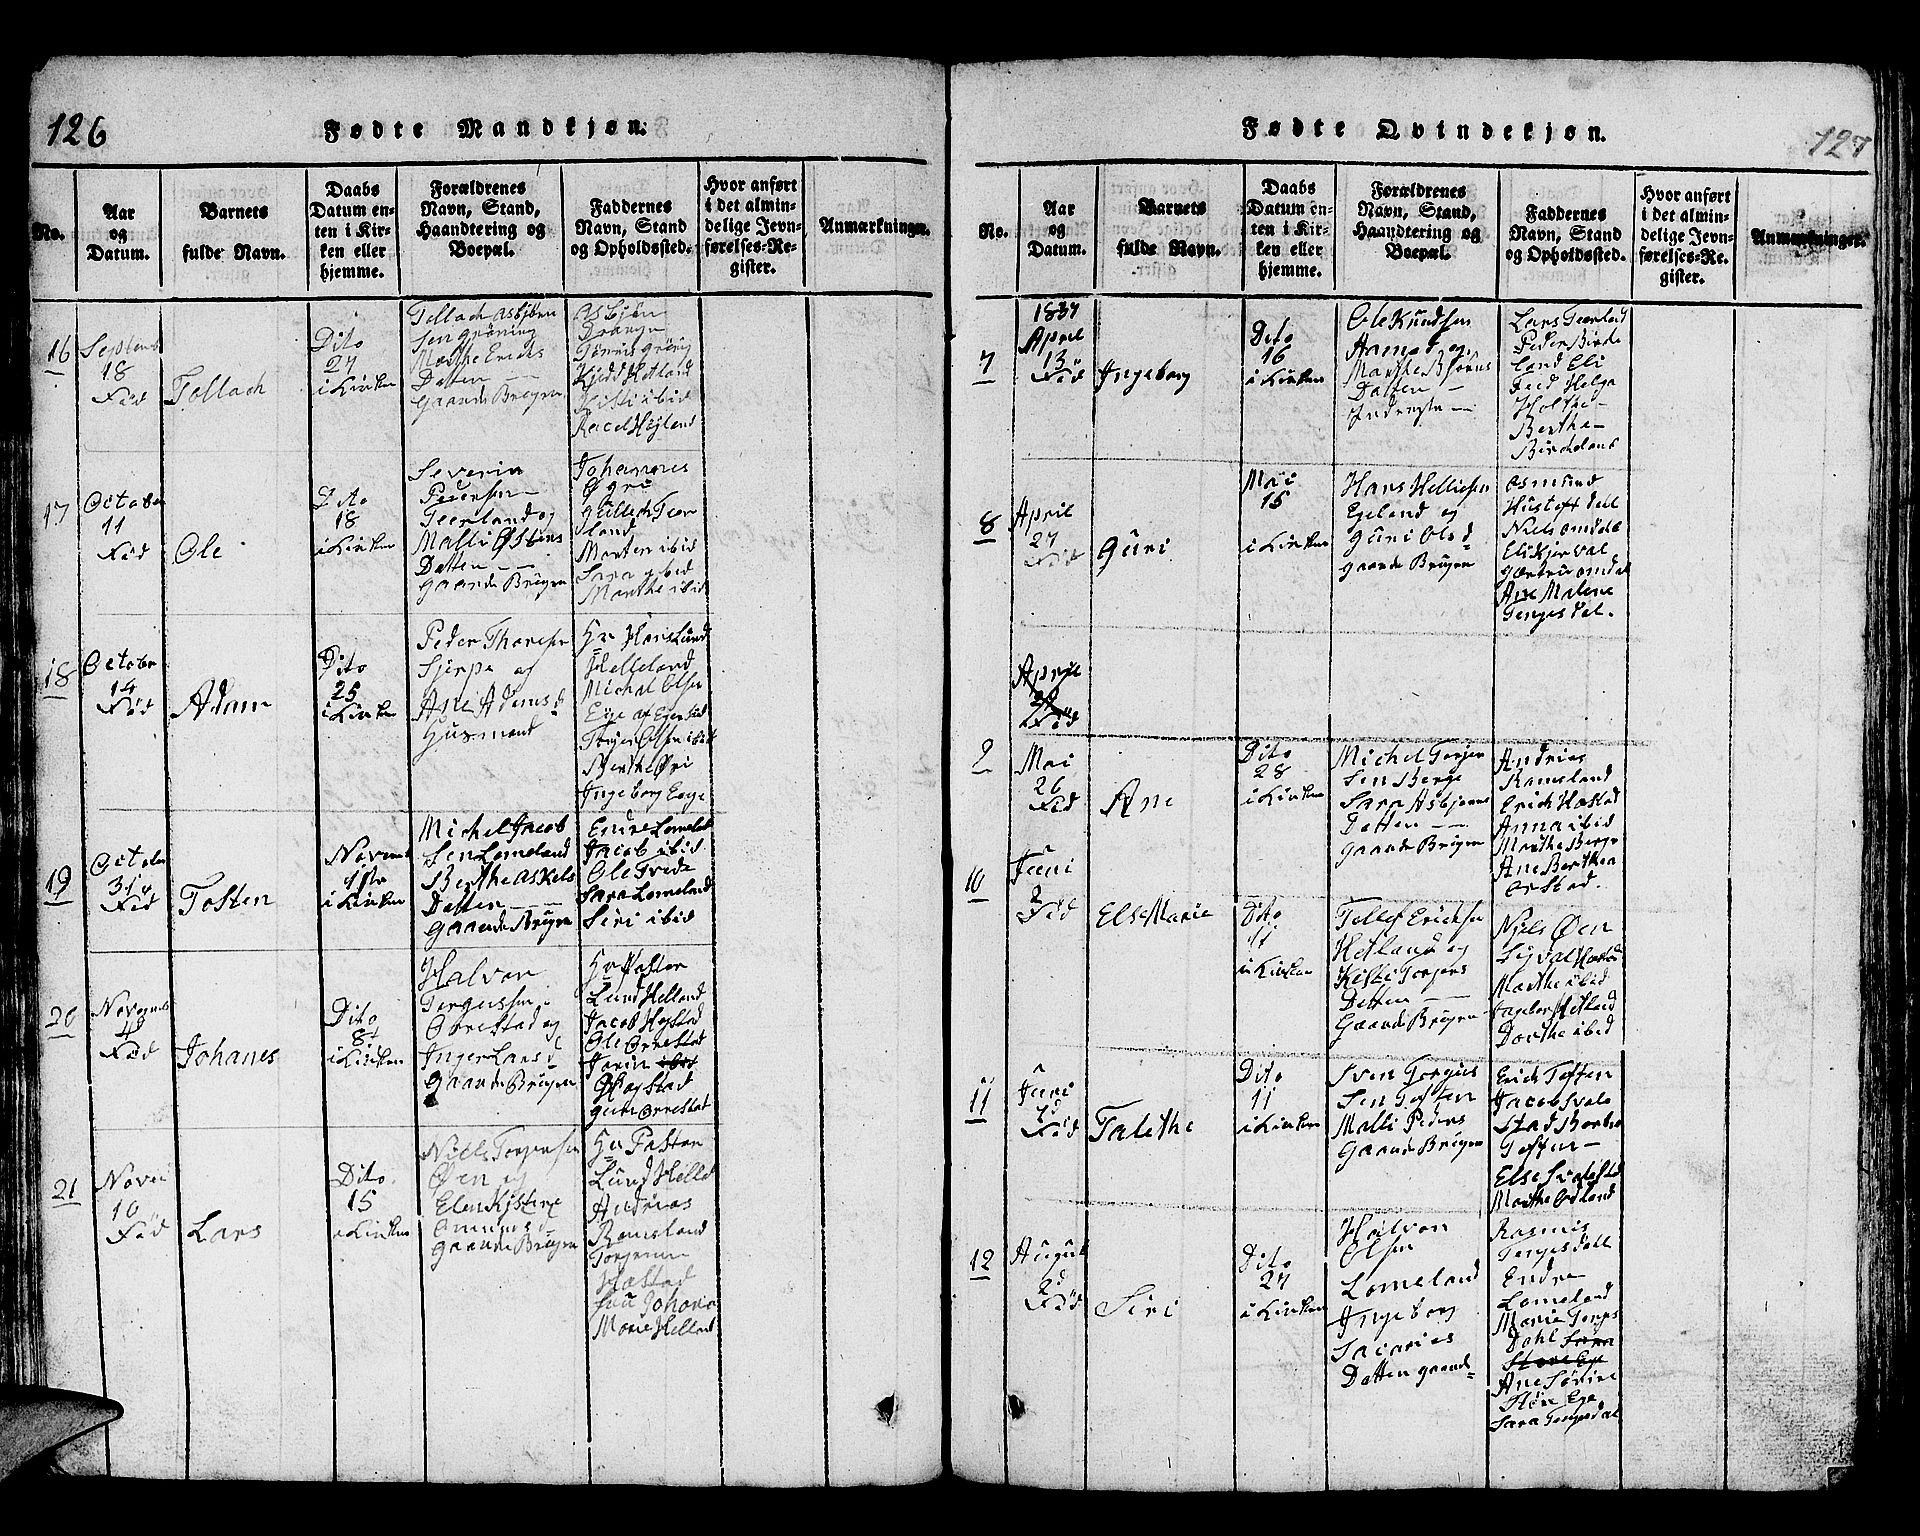 126
Fødte Mandkjøn.
No.
Aar
og
Datum.
Barnets
fulde Navn.
Daabs
Datum en-
ten i Kir-
ken eller
hjemme.
Forældrenes
Navn, Stand,
Haandtering og
Boepæl.
Faddernes
Navn, Stand
og Opholdssted.
Hvor anført
i det almin-
delige Jevn-
førelses-Re-
gister.
Anmærkninger.
16
Septemb
18
Fød
Tollach
Dito
27
i Kirken
Tollach Asbjørn
sen Grøning
Marthe Erichs
Datter
Gaarde Brugen
Asbjøn
Drange
Tønnis Grønig
Kield Hetland
Kisti ibid
Racel Højland
17
October
11
Fød
Ole
Dito
18
i Kirken
Severin
Pedersen
Teerland og
Malli Østens
Datter
Gaarde Brugen
Johannes
Øgri
Gullech Teer
land
Marten ibid
Sara ibid
Marthe ibid
18
October
14
Fød
Adam
Dito
25
i Kirken
Peder Thorsen
Sjerpe og
Ane Adams d
Husmand
Hr Hans Lund
Helleland
Michal Olsen
Eye af Egersud
Torger Olsen ibid
Berthe Øri
Ingeborg Eege
19
October
31te
Fød
Tosten
Novem
1ste
i Kirken
Michel Jacob
Sen Lomeland
Berthe Askels
Datter
Gaarde Brugen
Endre Lomeland
Jacob ibid
Ole Trede
Sara Lomeland
Siri ibid
20
Novemb
4d
Fød
Johanes
Dito
8d
i Kirken
Halvor
Tergussen
Orrestad og
Inger Lars d
Gaarde Brugen
Hr Paster
Lund Helland
Jacob Høgstad
Ole Orrestad
Jorin ibid
Høgstad
Guri Orrestat
21
Nove
10
Fød
Lars
Dito
15
i Kirken
Niels Torgersen
Øen og
Elen Kistene
Gaarde Brugen
Hr Paster
Lund Helld
Andrias
Ramsland
Torger
Hæstad
fru Johane
Marie Helland
Fødte Qvindekjøn.
127
No.
Aar
og
Datum.
Barnets
fulde Navn.
Daabs
Datum en-
ten i Kir-
ken eller
hjemme.
Forældrenes
Navn, Stand,
Haandtering og
Boepæl.
Faddernes
Navn, Stand
og Opholdssted.
Hvor anført
i det almin-
delige Jevn-
førelses-Re-
gister.
Anmærkninger.
7
1837
April
13
Fød
Ingeborg
Dito
16
i Kirken
Ole Kundsen
Aamot og
Marthe Bjørns
Datter
Inderste
Lars Teerland
Peder Birke
land Eli
Fred Helga
Holthe
Berthe
Birkeland
8
April
27
Fød
Guri
Mai
15
i Kirken
Hans Helliesen
Egeland og
Guri Ols d
Gaarde Brugen
Osmund
Hustoft del
Niels Omdal
Eli Kjerval
Gærtru Omdal
Ane Malene
Tengesdal.
April
Fød
2
Mai
26
Fød
Ane
Dito
28
i Kirken
Michel Torjer
Sen Berge
Sara Asbjørns
Datter
Gaarde Brugen
Andrias
Ramsland
Erich Hæstad
Anna ibid
Marthe Berge
Ane Berthea
Orstad.
10
Juni
2
Fød
Else Marie
Dito
11
i Kirken
Tollef Ericksen
Hetland og
Kisti Torgers
Datter
Gaarde Brugen
Niels Øen
Syval Hæstad
Marthe ibid
Hetland
Dorthe ibid
11
Juni
2d
Fød
Talethe
Dito
11
i Kirken
Sven Gorgius
Sen Tosten
Malli Peders
Gaarde Brugen
Erich Tosten
Jacob Svale
Stad Borthe
Tosten
Else Svalestad
Marthe Odland
12
August
2d
Fød
Siri
Dito
27
i Kirken
Halvor
Olsen
Lomeland
Ingeborg
Sacarias
Datter gaard
Rasmus
Tengesdall
Endre
Lomeland
Marie Tenges
Dahl Sara
Store Eye
Ane Sørine
Fløn Eye
Sara Tengesdal